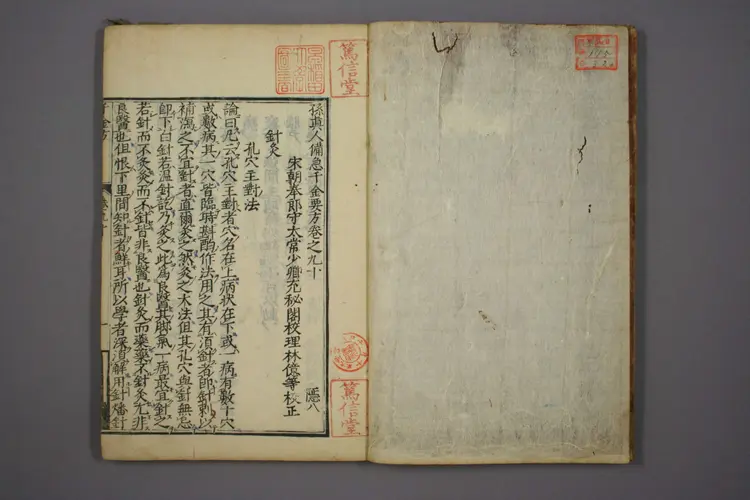 孫真人備急千金要方卷之九十
隱八
宋朝奉郎守太常少卿充秘閣校理林億等校正
針灸
孔穴主對法
論曰凡云孔穴主對者穴名在上病狀在下或一病有數十穴
或數病共一穴皆臨時斟酌作法用之其有須針者即針刺以
補瀉之不宜針者直爾灸之然灸之大法但其孔穴與針無忌
即下白針若温針訖乃灸之此為良醫其脚氣一病最宜針之
若針而不灸灸而不針皆非良醫也針灸而藥藥不針灸尤非
良醫也但恨下里間知針者鮮耳所以學者深須解用針燔針
篤信堂
篤信堂